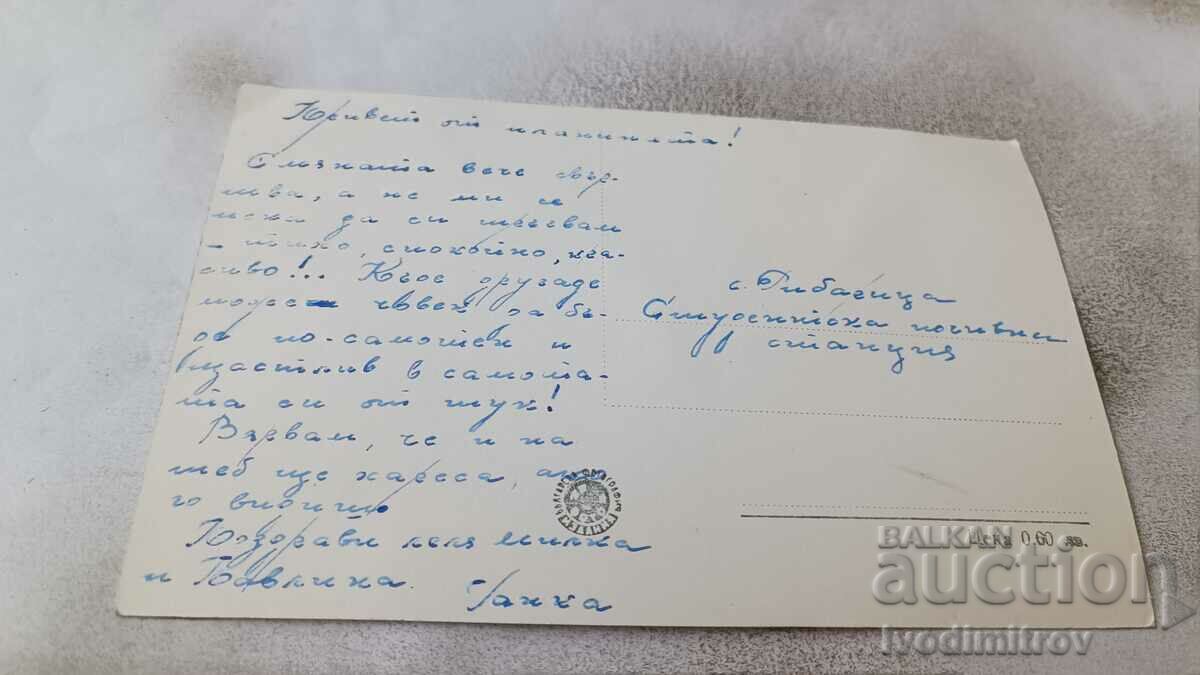 Привет от планината!
Смяната вече свър-
шва, а не ми се
иска да си тръгвам
- тихо, спокойно, кра-
сиво!.. Къде другаде
може човек да бъ-
де по-самотен и
щастлив в самота-
та си от тук!
Вярвам, че и на
теб ще хареса, ако
го видиш
Поздрави леля Милка
и Павлина.
Ганка
с. Рибарица
Студентска почивна
станция
БЪЛГАРСКА ФОТОГРАФИЯ
Цена 0,60 лв.
BALKAN
auction
ivodimitrov